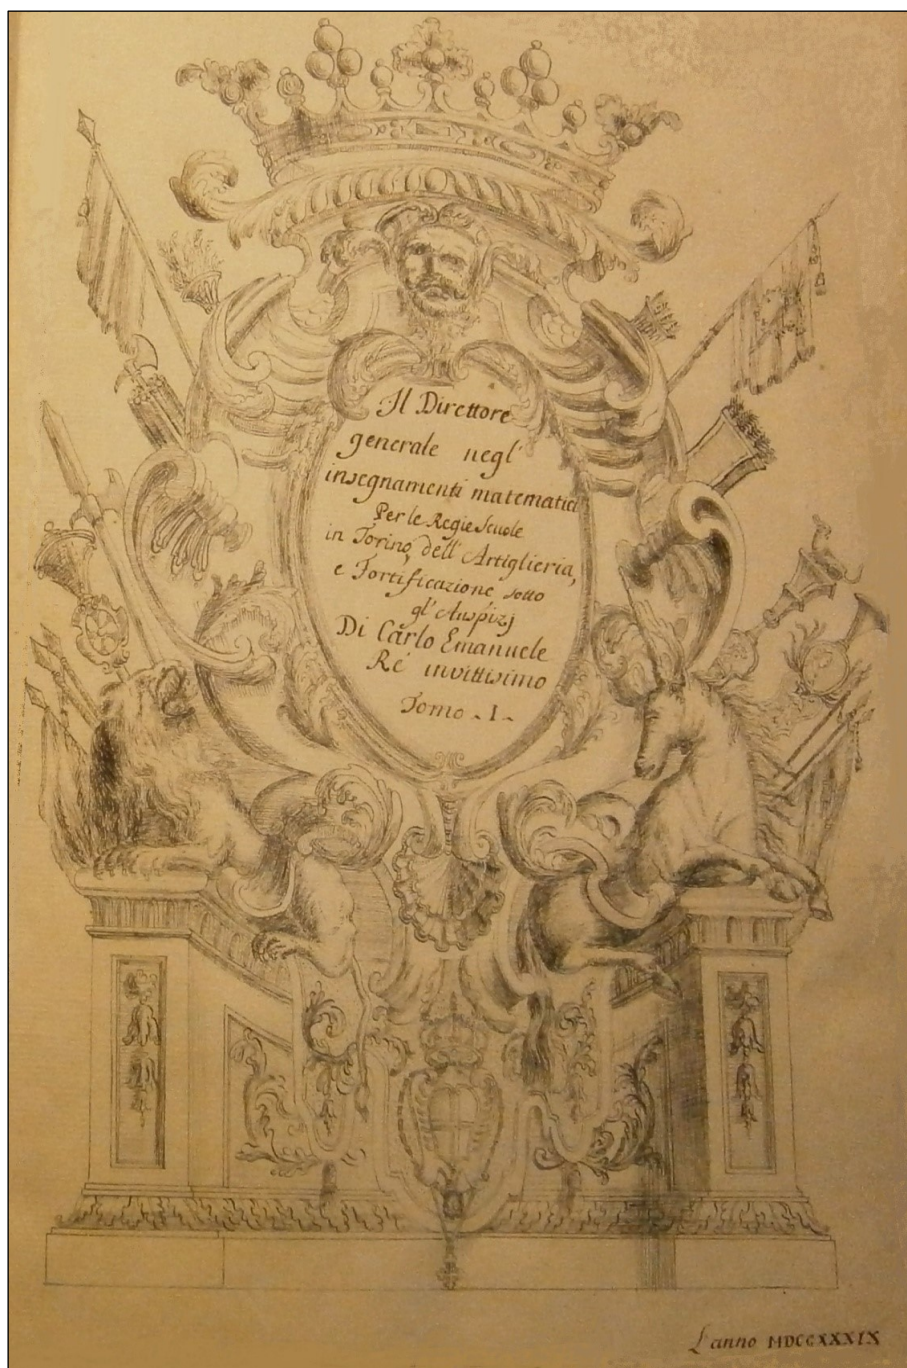 Il Direttore
generale negl'
insegnamenti matematici
Per le Regie Scuole
in Torino, dell'Artiglieria,
e Fortificazione sotto
gl'Auspizj
Di Carlo Emanuele
Rè invittisimo
Tomo - I -
L'anno MDCCXXXIX